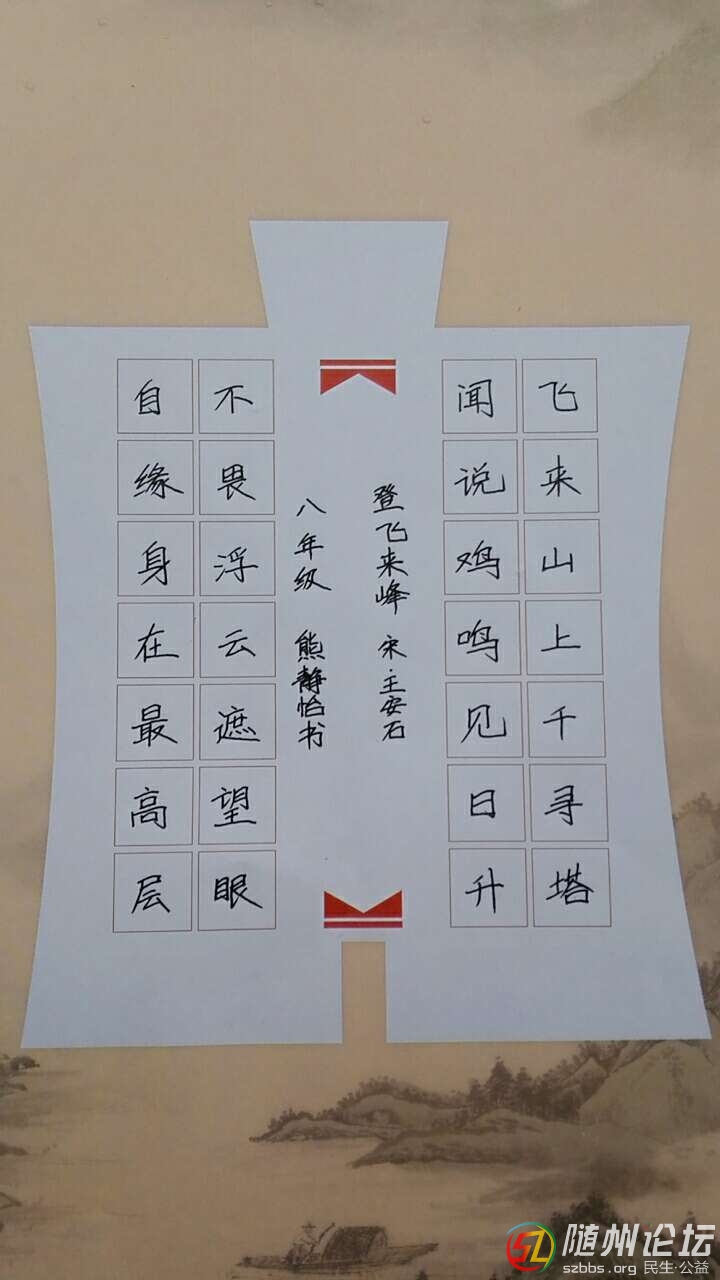 飞来山上千寻塔
闻说鸡鸣见日升
登飞来峰 宋 王安石
八年级 熊静怡书
不畏浮云遮望眼
自缘身在最高层
随州论坛
szbbs.org 民生·公益